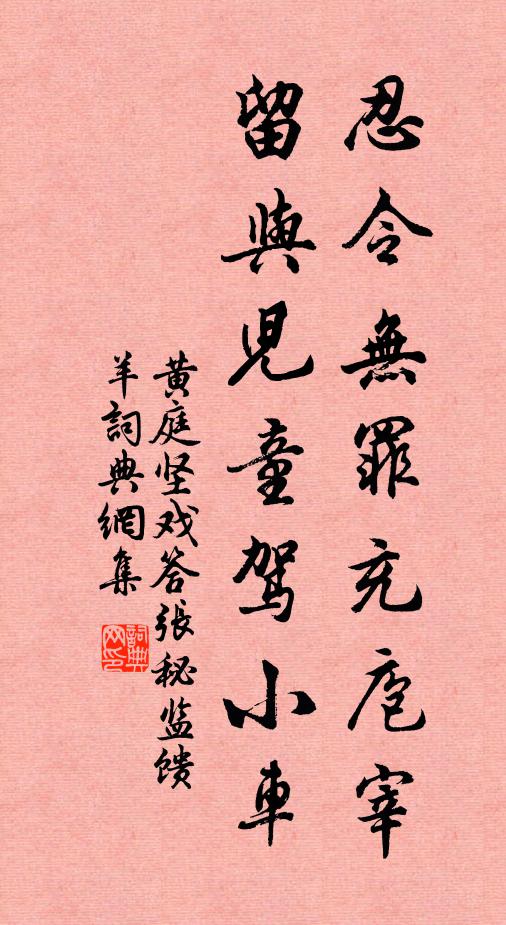 忍令無罪充庖宰
留與兒童駕小車
黃庭坚戏答張秘监馈
羊詞典網集
詞典网印